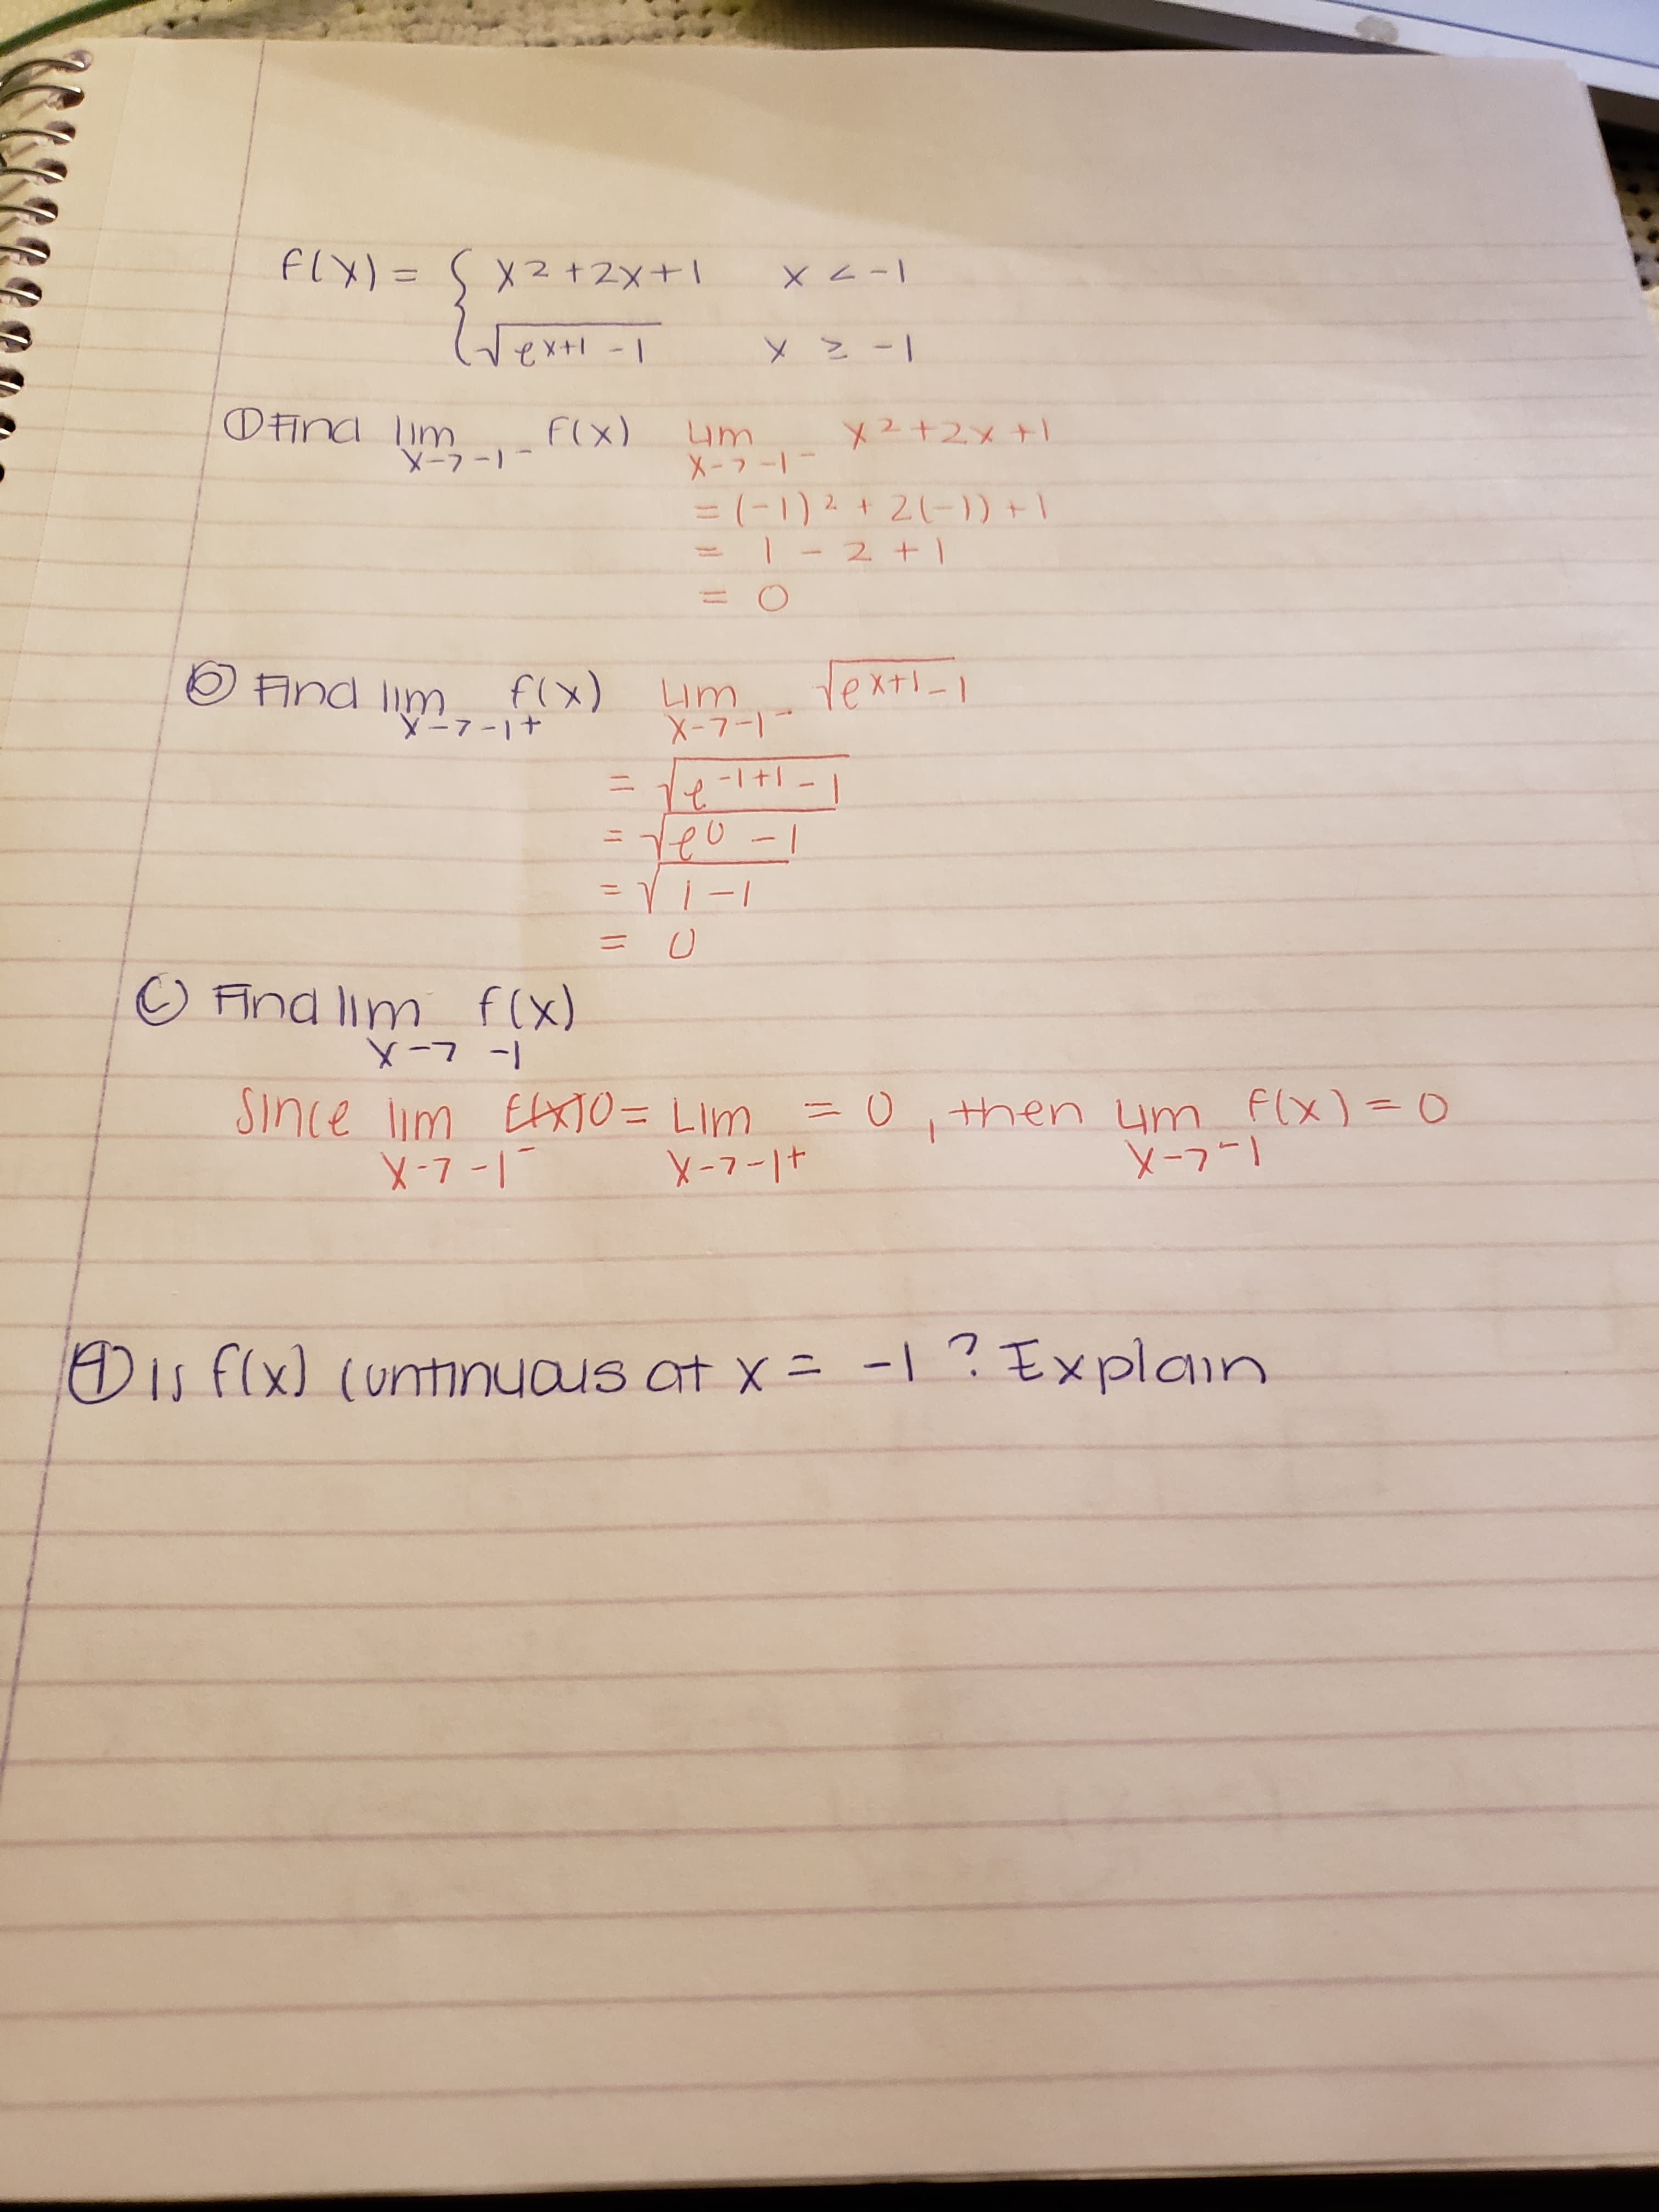 f(x) = { x² + 2x + 1 x < -1
√(e^(x+1) - 1) x ≥ -1
① Find lim f(x) lim x² + 2x + 1
x→-1⁻ x→-1⁻
= (-1)² + 2(-1) + 1
= 1 - 2 + 1
= 0
ⓑ Find lim f(x) lim √(e^(x+1) - 1)
x→-1+ x→-1⁻
= √(e^(-1+1) - 1)
= √(e^0 - 1)
= √(1 - 1)
= 0
ⓒ Find lim f(x)
x→ -1
Since lim f(x) 0 = lim = 0, then lim f(x) = 0
x→-1⁻ x→-1+ x→-1
④ Is f(x) continuous at x = -1? Explain